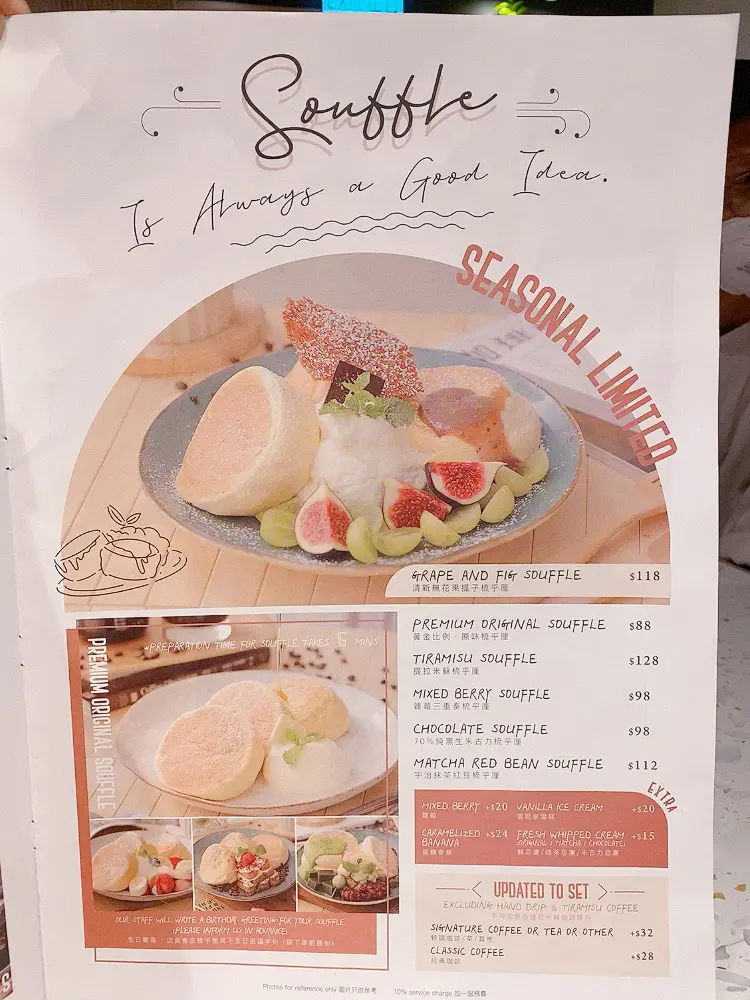 Souffle
Is Always a Good Idea.
SEASONAL LIMITED
GRAPE AND FIG SOUFFLE $118
清新無花果提子梳乎厘
*PREPARATION TIME FOR SOUFFLE TAKES 15 MINS
PREMIUM ORIGINAL SOUFFLE
PREMIUM ORIGINAL SOUFFLE $88
黃金比例・原味梳乎厘
TIRAMISU SOUFFLE $128
提拉米蘇梳乎厘
MIXED BERRY SOUFFLE $98
雜莓三重奏梳乎厘
CHOCOLATE SOUFFLE $98
70%純黑生朱古力梳乎厘
MATCHA RED BEAN SOUFFLE $112
宇治抹茶紅豆梳乎厘
EXTRA
MIXED BERRY +$20 VANILLA ICE CREAM +$20
雜莓 雲呢拿雪糕
CARAMELIZED BANANA +$24 FRESH WHIPPED CREAM +$15
(ORIGINAL / MATCHA / CHOCOLATE)
焦糖香蕉 鮮忌廉/綠茶忌廉/朱古力忌廉
UPDATED TO SET
EXCLUDING HAND DRIP & TIRAMISU COFFEE
SIGNATURE COFFEE OR TEA OR OTHER +$32
特調咖啡/茶/其他
CLASSIC COFFEE +$28
經典咖啡
OUR STAFF WILL WRITE A BIRTHDAY GREETING FOR YOUR SOUFFLE
(PLEASE INFORM US IN ADVANCE)
Photos for reference only 圖片只供參考 10% service charge 加一服務費